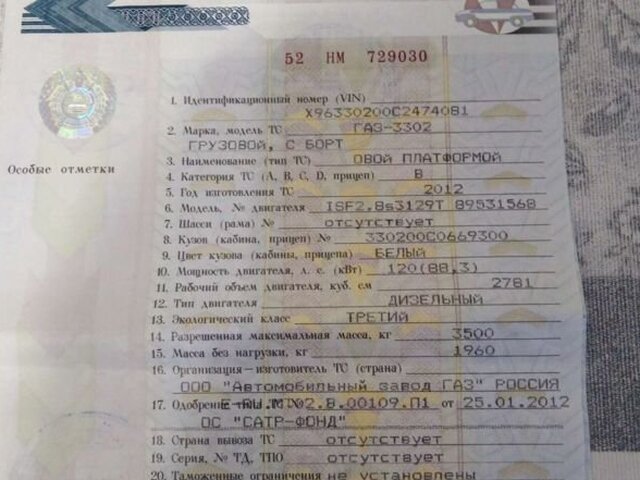 52 НМ 729030
1. Идентификационный номер (VIN) X96330200C2474081
2. Марка, модель ТС ГАЗ-3302
ГРУЗОВОЙ, С БОРТ
3. Наименование (тип ТС) ОВОЙ ПЛАТФОРМОЙ
Особые отметки
4. Категория ТС (А, В, С, D, прицеп) В
5. Год изготовления ТС 2012
6. Модель, № двигателя ISF2.8s3129T 89531568
7. Шасси (рама) № отсутствует
8. Кузов (кабина, прицеп) № 330200C0669300
9. Цвет кузова (кабины, прицепа) БЕЛЫЙ
10. Мощность двигателя, л. с. (кВт) 120(88,3)
11. Рабочий объем двигателя, куб. см 2781
12. Тип двигателя ДИЗЕЛЬНЫЙ
13. Экологический класс ТРЕТИЙ
14. Разрешенная максимальная масса, кг 3500
15. Масса без нагрузки, кг 1960
16. Организация-изготовитель ТС (страна)
ООО "Автомобильный завод ГАЗ" РОССИЯ
17. Одобрение 02.В.00109.П1 от 25.01.2012
ОС "САТР-ФОНД"
18. Страна вывоза ТС отсутствует
19. Серия, № ТД, ТПО отсутствует
20. Таможенные ограничения не установлены